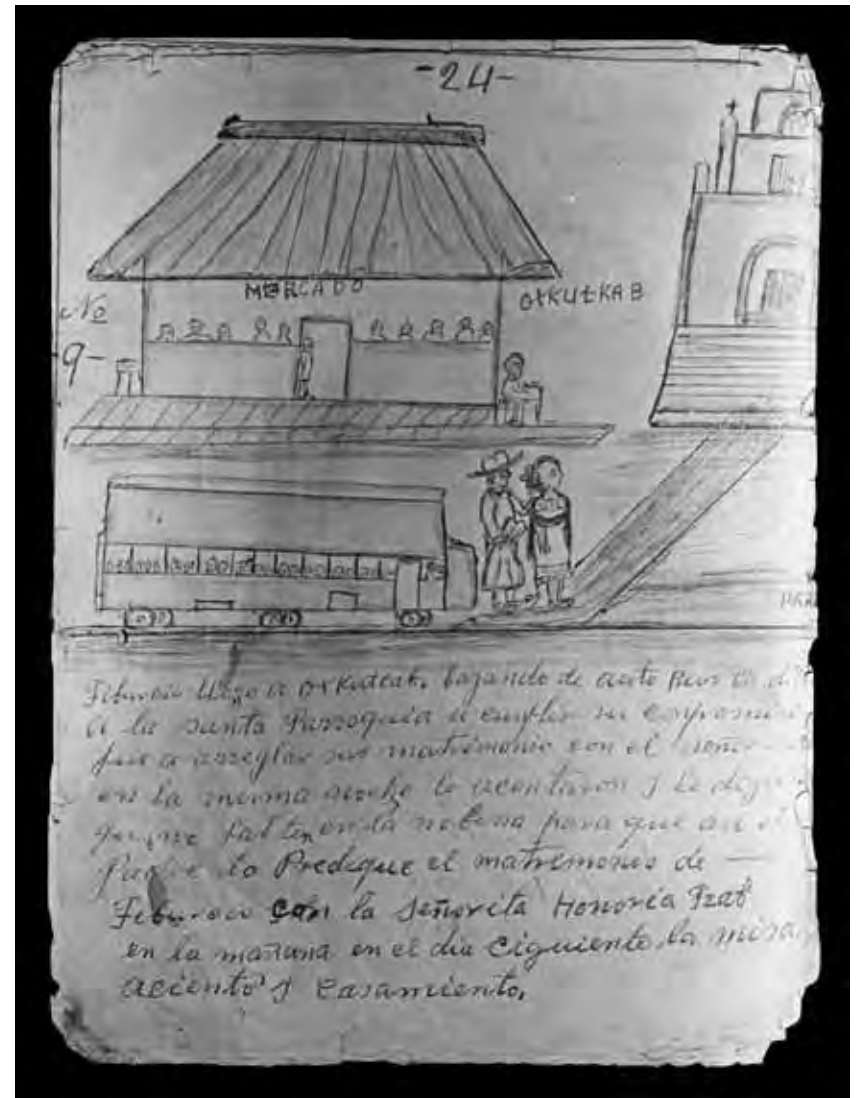 -24-
MERCADO
OXKUTKAB
No
9-
Tiburcio llego a Oxkutcab. bajando de auto
a la santa Parroquia a cumplir su
fue a arreglar sus matrimonio con el señor
en la misma noche lo acentaron y le
que no falten en la nobena para que an el
Padre lo Predique el matremonio de —
Tiburcio con la Señorita Honoria Tzab
en la mañana en el dia Ciguiente, la misa
aciento y Casamiento.